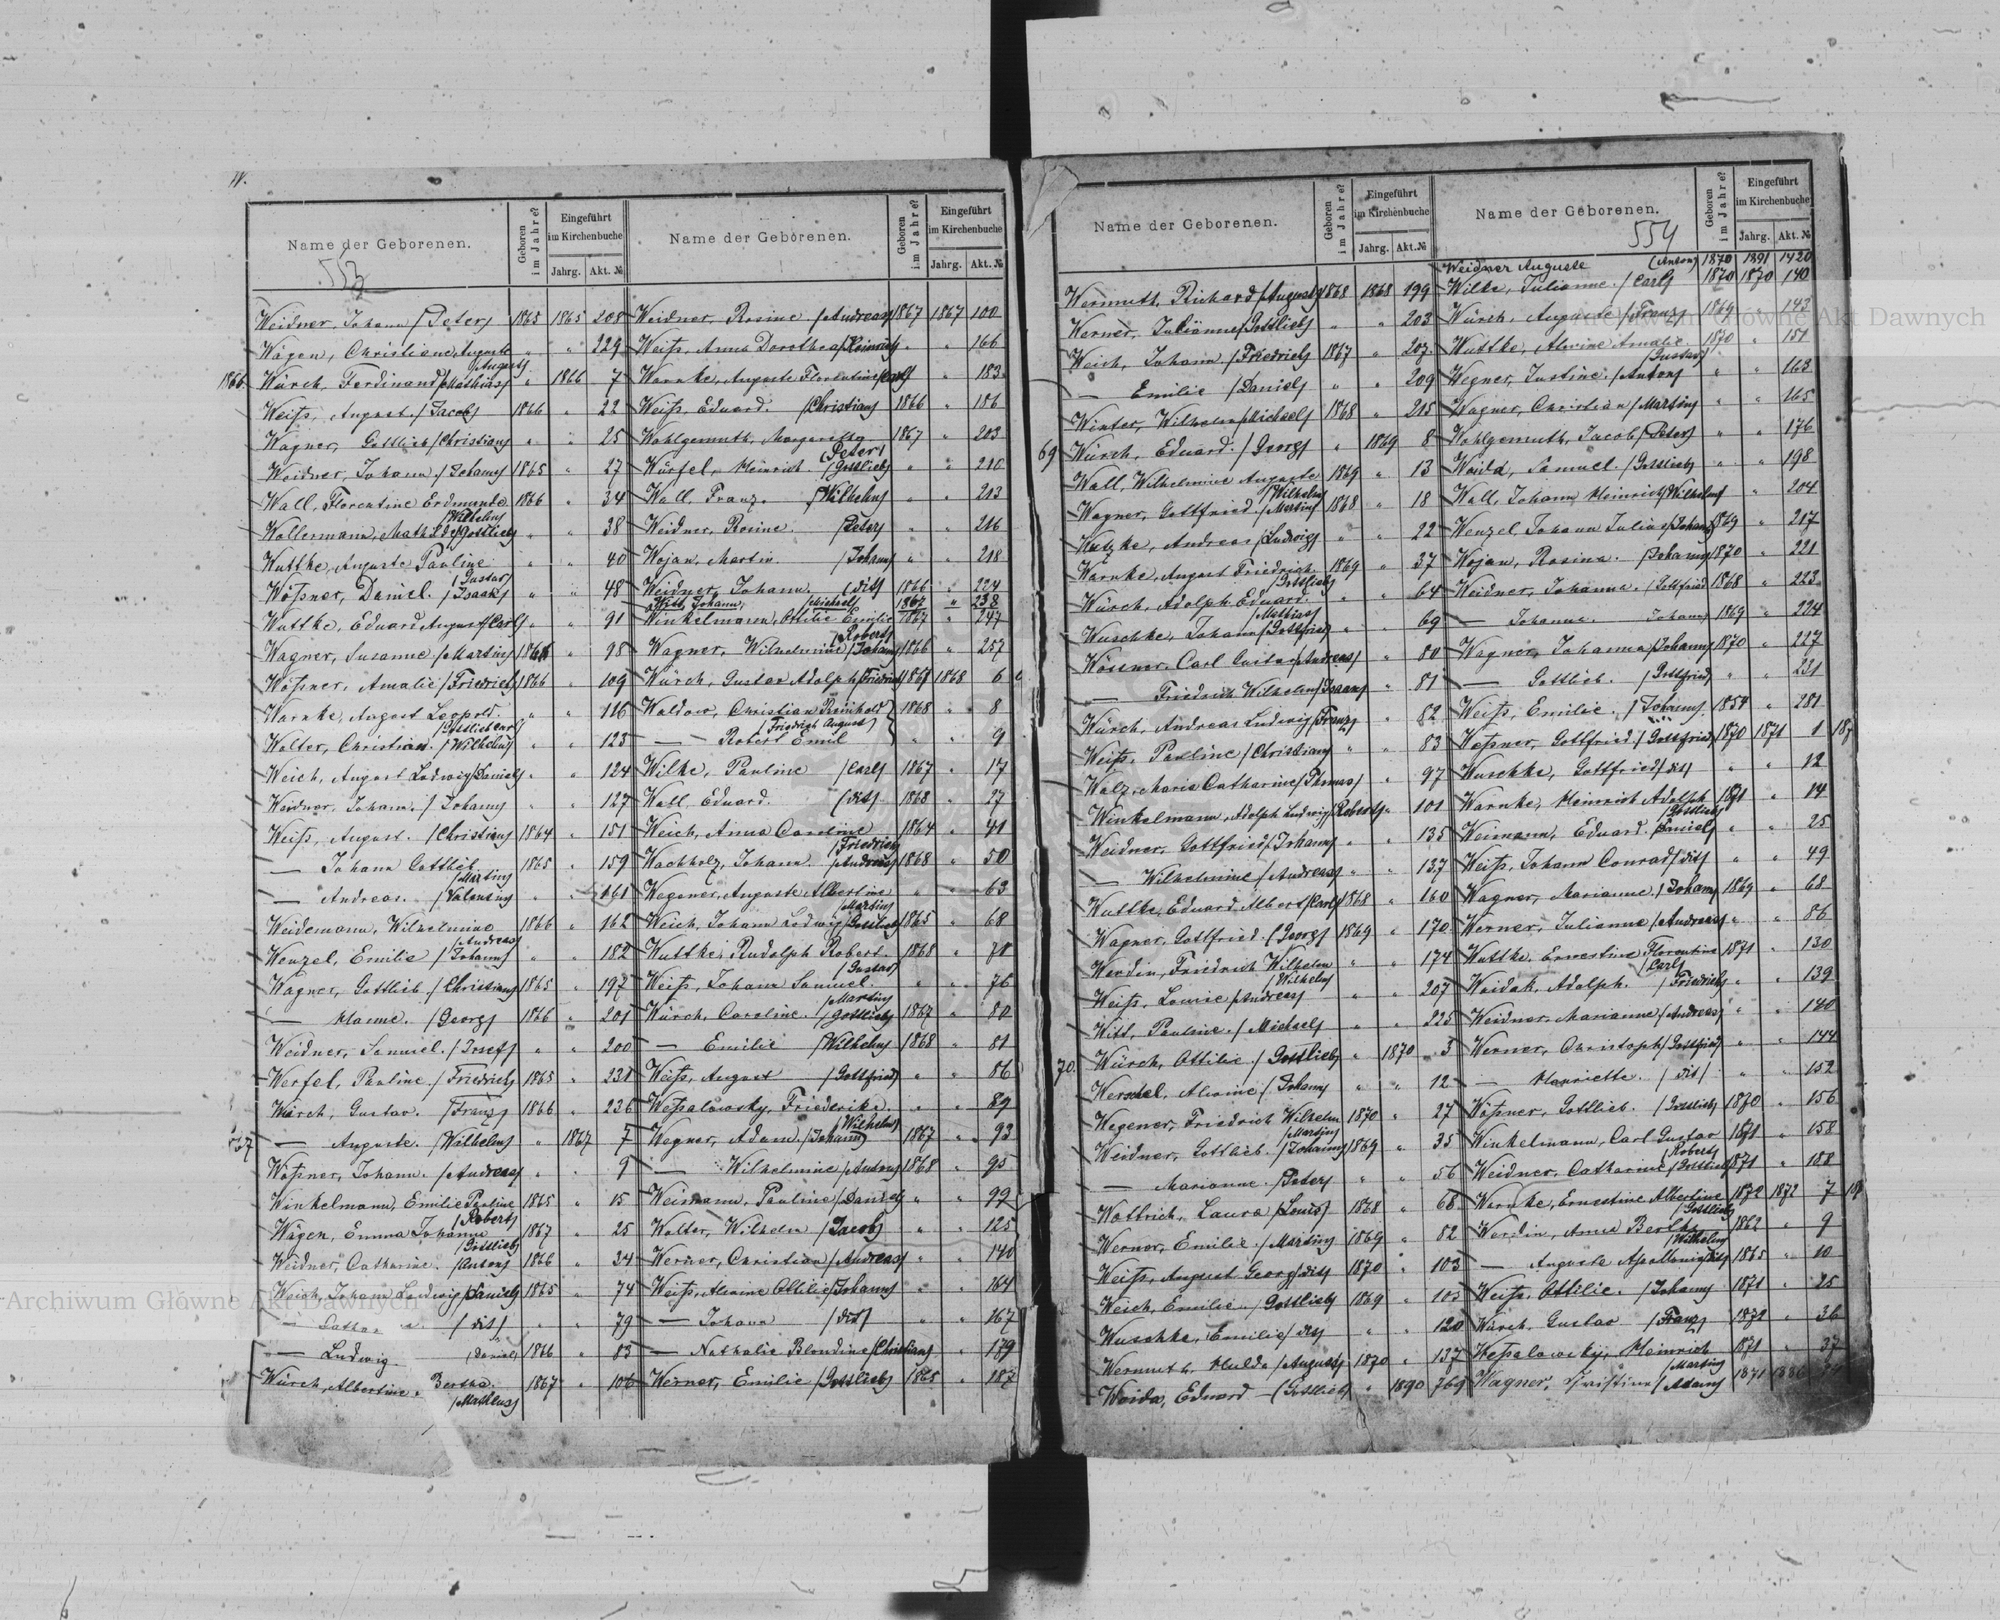 W.
Name der Geborenen.
Geboren im Jahre?
Eingeführt im Kirchenbuche
Jahrg. Akt. №
553
Weidner, Johann /Peter/ 1865 1865 208
Wägen, Christiane Auguste /August/ " " 229
1866 Würch, Ferdinand /Mathias/ " 1866 7
Weiß, August. /Jacob/ 1866 " 22
Wagner, Gottlieb /Christian/ " " 25
Weidner, Johann. /Johann/ 1865 " 27
Wall, Florentine Erdmunde /Wilhelm/ 1866 " 34
Wollermann, Mathilde /Gottlieb/ " " 38
Wuttke, Auguste Pauline /Gustav/ " " 40
Wößner, Daniel. /Isaak/ " " 48
Wuttke, Eduard August /Carl/ " " 91
Wagner, Susanne /Martin/ " 98
Wößner, Amalie /Friedrich/ 1866 " 109
Warnke, August Leopold /Gottlieb/ " " 116
Wolter, Christian. /Wilhelm/ " " 123
Weich, August Ludwig /Daniel/ " " 124
Weidner, Johann. /Johann/ " " 127
Weiß, August. /Christian/ 1864 " 151
— Johann Gottlieb /Martin/ 1865 " 159
— Andreas. /Valentin/ " " 161
Weidemann, Wilhelmine /Andreas/ 1866 " 162
Wenzel, Emilie /Johann/ " " 182
Wagner, Gottlieb. /Christian/ 1865 " 197
— Hanne. /Georg/ 1866 " 201
Weidner, Samuel. /Josef/ " " 200
Werfel, Pauline. /Friedrich/ 1865 " 231
Würch, Gustav. /Franz/ 1866 " 236
— Auguste. /Wilhelm/ " 1867 7
Wößner, Johann. /Andreas/ " " 9
Winkelmann, Emilie Pauline /Robert/ 1865 " 15
Wägen, Emma Johanne /Gottlieb/ 1867 " 25
Weidner, Catharine. /Anton/ 1866 " 34
Weich, Johann Ludwig /Daniel/ 1865 " 74
— /dit/ " " 79
— Ludwig /Daniel/ 1866 " 83
Würch, Albertine Bertha. /Mathias/ 1867 " 106
Name der Geborenen.
Geboren im Jahre?
Eingeführt im Kirchenbuche
Jahrg. Akt. №
Weidner, Rosine /Andreas/ 1867 1867 100
Weiß, Anna Dorothea /Heinrich/ " " 166
Warnke, Auguste Florentine /Carl/ " " 183
Weiß, Eduard. /Christian/ 1866 " 186
Wohlgemuth, Margaretha /Peter/ 1867 " 203
Würfel, Heinrich. /Gottlieb/ " " 210
Wall, Franz. /Wilhelm/ " " 213
Weidner, Rosine. /Peter/ " " 216
Wojan, Martin. /Johann/ " " 218
Weidner, Johann. /dit/ 1866 " 224
Witt, Johann, /Michael/ 1867 " 238
Winkelmann, Ottilie Emilie /Robert/ 1867 " 247
Wagner, Wilhelmine /Johann/ 1866 " 257
Würch, Gustav Adolph /Friedrich/ 1867 1868 6
Waldow, Christian Reinhold /Friedrich August/ 1868 " 8
— Robert Emil " " 9
Wilke, Pauline /Carl/ 1867 " 17
Wall, Eduard. /dit/ 1868 " 27
Weich, Anna Caroline /Friedrich/ 1864 " 41
Wachholz, Johann. /Andreas/ 1868 " 50
Wegener, Auguste Albertine /Martin/ " " 63
Weich, Johann Ludwig /Gottlieb/ 1865 " 68
Wuttke, Rudolph Robert. /Gustav/ 1868 " 71
Weiß, Johann Samuel. /Martin/ " " 76
Würch, Caroline. /Gottlieb/ 1867 " 80
— Emilie /Wilhelm/ 1868 " 81
Weiß, August /Gottfried/ " " 86
Weßalowsky, Friederike. /Wilhelm/ " " 89
Wegner, Adam. /Johann/ 1867 " 93
— Wilhelmine /Andreas/ 1868 " 95
Weimann, Pauline /Daniel/ " " 99
Wolter, Wilhelm /Jacob/ " " 125
Werner, Christian /Andreas/ " " 140
Weiß, Alwine Ottilie /Johann/ " " 164
— Johann /dit/ " " 167
— Nathalie Blondine /Christian/ " 179
Werner, Emilie /Gottlieb/ 1865 " 187
Name der Geborenen.
Geboren im Jahre?
Eingeführt im Kirchenbuche
Jahrg. Akt. №
Wermuth, Richard /August/ 1868 1868 199
Werner, Julianne /Gottlieb/ " " 203
Weich, Johann /Friedrich/ 1867 " 207
— Emilie /Daniel/ " " 209
Winter, Wilhelm /Michael/ 1868 " 215
69 Würch, Eduard. /Georg/ " 1869 8
Wall, Wilhelmine Auguste /Wilhelm/ 1869 " 13
Wagner, Gottfried. /Martin/ 1868 " 18
Watzke, Andreas /Ludwig/ " " 22
Warnke, August Friedrich /Gottlieb/ 1869 " 37
Würch, Adolph Eduard. /Mathias/ " " 64
Wuschke, Johann /Gottfried/ " " 69
Wössner, Carl Gustav /Andreas/ " 80
— Friedrich Wilhelm /Isaak/ " 81
Würch, Andreas Ludwig /Franz/ " 82
Weiß, Pauline /Christian/ " " 83
Walz, Maria Catharine /Thomas/ " 97
Winkelmann, Adolph Ludwig /Robert/ " 101
Weidner, Gottfried /Johann/ " " 135
— Wilhelmine /Andreas/ " " 137
Wuttke, Eduard Albert /Carl/ 1868 " 160
Wagner, Gottfried. /Georg/ 1869 " 170
Werdin, Friedrich Wilhelm /Wilhelm/ " " 174
Weiß, Louise /Andreas/ " " 207
Witt, Pauline. /Michael/ " " 225
70. Würch, Ottilie /Gottlieb/ " 1870 3
Werschel, Alwine /Johann/ " " 12
Wegener, Friedrich Wilhelm /Martin/ 1870 " 27
Weidner, Gottlieb. /Johann/ 1869 " 35
— Marianne. /Peter/ " " 56
Wottrich, Laura /Louis/ 1868 " 68
Werner, Emilie. /Martin/ 1869 " 82
Weiß, August Georg /dit/ 1870 " 103
Weich, Emilie. /Gottlieb/ 1869 " 105
Wuschke, Emilie /dit/ " " 120
Wermuth, Hulda /August/ 1870 " 137
Woida, Eduard /Gottlieb/ " 1890 769
Name der Geborenen.
Geboren im Jahre?
Eingeführt im Kirchenbuche
Jahrg. Akt. №
554
Weidner Auguste (Anton) 1870 1891 1420
Wilke, Julianne. /Carl/ 1870 1870 140
Würch, Auguste /Franz/ 1869 " 143
Wuttke, Alwine Amalie. /Gustav/ 1870 " 151
Wegner, Justine. /Anton/ " " 163
Wagner, Christian /Martin/ " " 165
Wohlgemuth, Jacob /Peter/ " " 176
Woida, Samuel. /Gottlieb/ " " 198
Wall, Johann Heinrich /Wilhelm/ " 204
Wenzel, Johann Julius /Johann/ 1869 " 217
Wojan, Rosina. /Johann/ 1870 " 221
Weidner, Johanna. /Gottfried/ 1868 " 223
— Johanna. Johann/ 1869 " 224
Wagner, Johanna /Johann/ 1870 " 227
— Gottlieb. /Gottfried/ " " 231
Weiß, Emilie. /Johann/ 1854 " 281
Weßner, Gottfried /Gottfried/ 1870 1871 1
Wuschke, Gottfried /dit/ " " 12
Warnke, Heinrich Adolph /Gottlieb/ 1871 " 14
Weimann, Eduard. /Daniel/ " " 25
Weiß, Johann Conrad /dit/ " " 49
Wagner, Marianne. /Johann/ 1869 " 68
Werner, Julianne /Andreas/ " " 86
Wuttke, Ernestine Florentine /Carl/ 1871 " 130
Woidak, Adolph. /Friedrich/ " " 139
Weidner, Marianne /Andreas/ " " 140
Werner, Christoph /Gottfried/ " " 144
— Henriette. /dit/ " " 152
Wößner, Gottlieb. /Gottlieb/ 1870 " 156
Winkelmann, Carl Gustav /Robert/ 1871 " 158
Weidner, Catharine /Gottlieb/ 1871 " 188
Warnke, Ernestine Albertine /Gottlieb/ 1872 1872 7
Werdin, Anna Bertha /Wilhelm/ 1862 " 9
— Auguste /dit/ 1865 " 10
Weiß, Ottilie. /Johann/ 1871 " 25
Würch, Gustav /Franz/ 1872 " 36
Weßalowsky, Heinrich /Martin/ 1871 " 37
Wagner, Christine /Adam/ 1871 1886
Archiwum Główne Akt Dawnych
Archiwum Główne Akt Dawnych